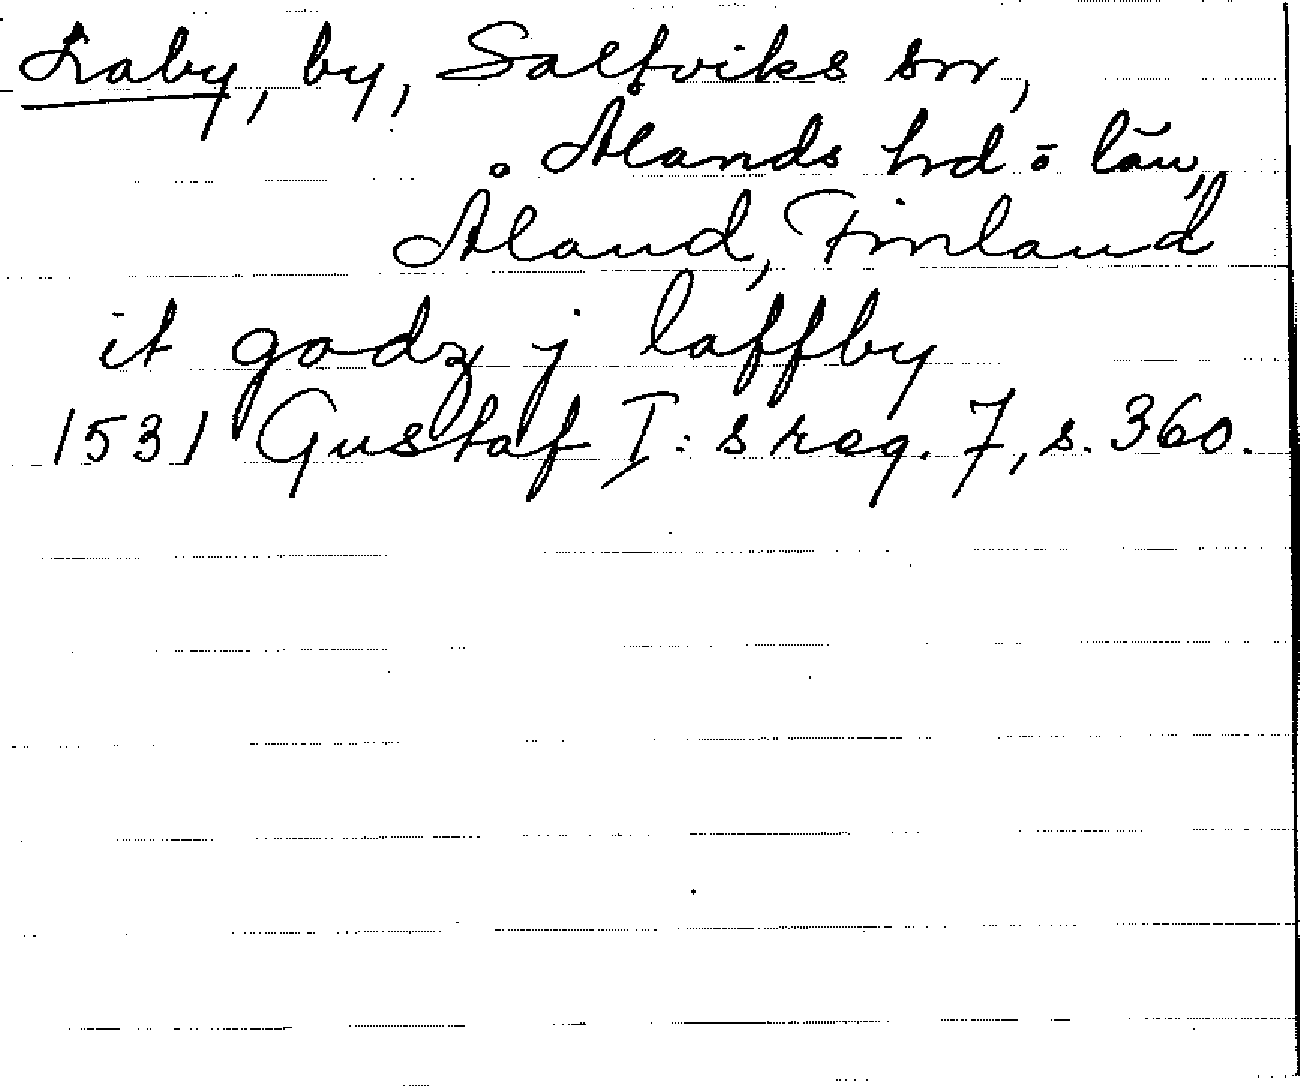 Laby, by, Saltviks sn,
Ålands hrd o län,
Åland, Finland
it godz j laffby
1531 Gustaf I:s reg. 7, s. 360.